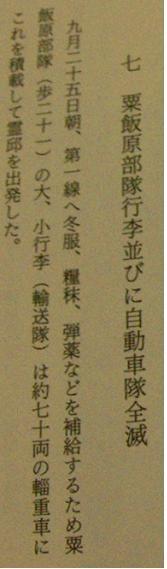 七　粟飯原部隊行李並びに自動車隊全滅
九月二十五日朝、第一線へ冬服、糧秣、弾薬などを補給するため粟
飯原部隊（歩二十一）の大、小行李（輸送隊）は約七十両の輜重車に
これを積載して霊邱を出発した。